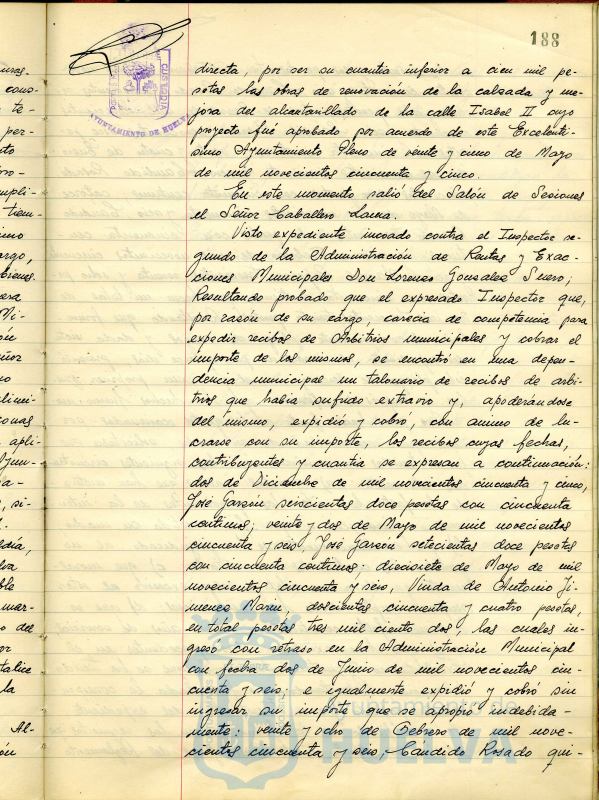 188
PORTUS MARIS
CUSTODIA
AYUNTAMIENTO DE HUELVA
directa, por ser su cuantía inferior a cien mil pe-
setas las obras de renovación de la calzada y me-
jora del alcantarillado de la calle Isabel II cuyo
proyecto fué aprobado por acuerdo de este Excelentí-
simo Ayuntamiento Pleno de veinte y cinco de Mayo
de mil novecientos cincuenta y cinco.
En este momento salió del Salón de Sesiones
el Señor Caballero
Visto expediente incoado contra el Inspector se-
gundo de la Administración de Rentas y Exac-
ciones Municipales Don Lorenzo Gonzalez Suero;
Resultando probado que el expresado Inspector que,
por razón de su cargo, carecia de competencia para
expedir recibos de Arbitrios municipales y cobrar el
importe de los mismos, se encontró en una depen-
dencia municipal un talonario de recibos de arbi-
trios que habia sufrido extravio y, apoderándose
del mismo, expidió y cobró, con animo de lu-
crarse con su importe, los recibos cuyas fechas,
contribuyentes y cuantia se expresan a continuación:
dos de Diciembre de mil novecientos cincuenta y cinco,
José Garzón seiscientas doce pesetas con cincuenta
centimos; veinte y dos de Mayo de mil novecientos
cincuenta y seis, José Garzón setecientas doce pesetas
con cincuenta centimos; diecisiete de Mayo de mil
novecientos cincuenta y seis, Viuda de Antonio Ji-
menez Marin, doscientas cincuenta y cuatro pesetas,
en total pesetas tres mil ciento dos, las cuales in-
gresó con retraso en la Administración Municipal
con fecha dos de Junio de mil novecientos cin-
cuenta y seis; e igualmente expidió y cobró sin
ingresar su importe que se apropió indebida-
mente: veinte y ocho de Febrero de mil nove-
cientos cincuenta y seis, Cándido Rosado qui-
Ayuntamiento de
HUELVA